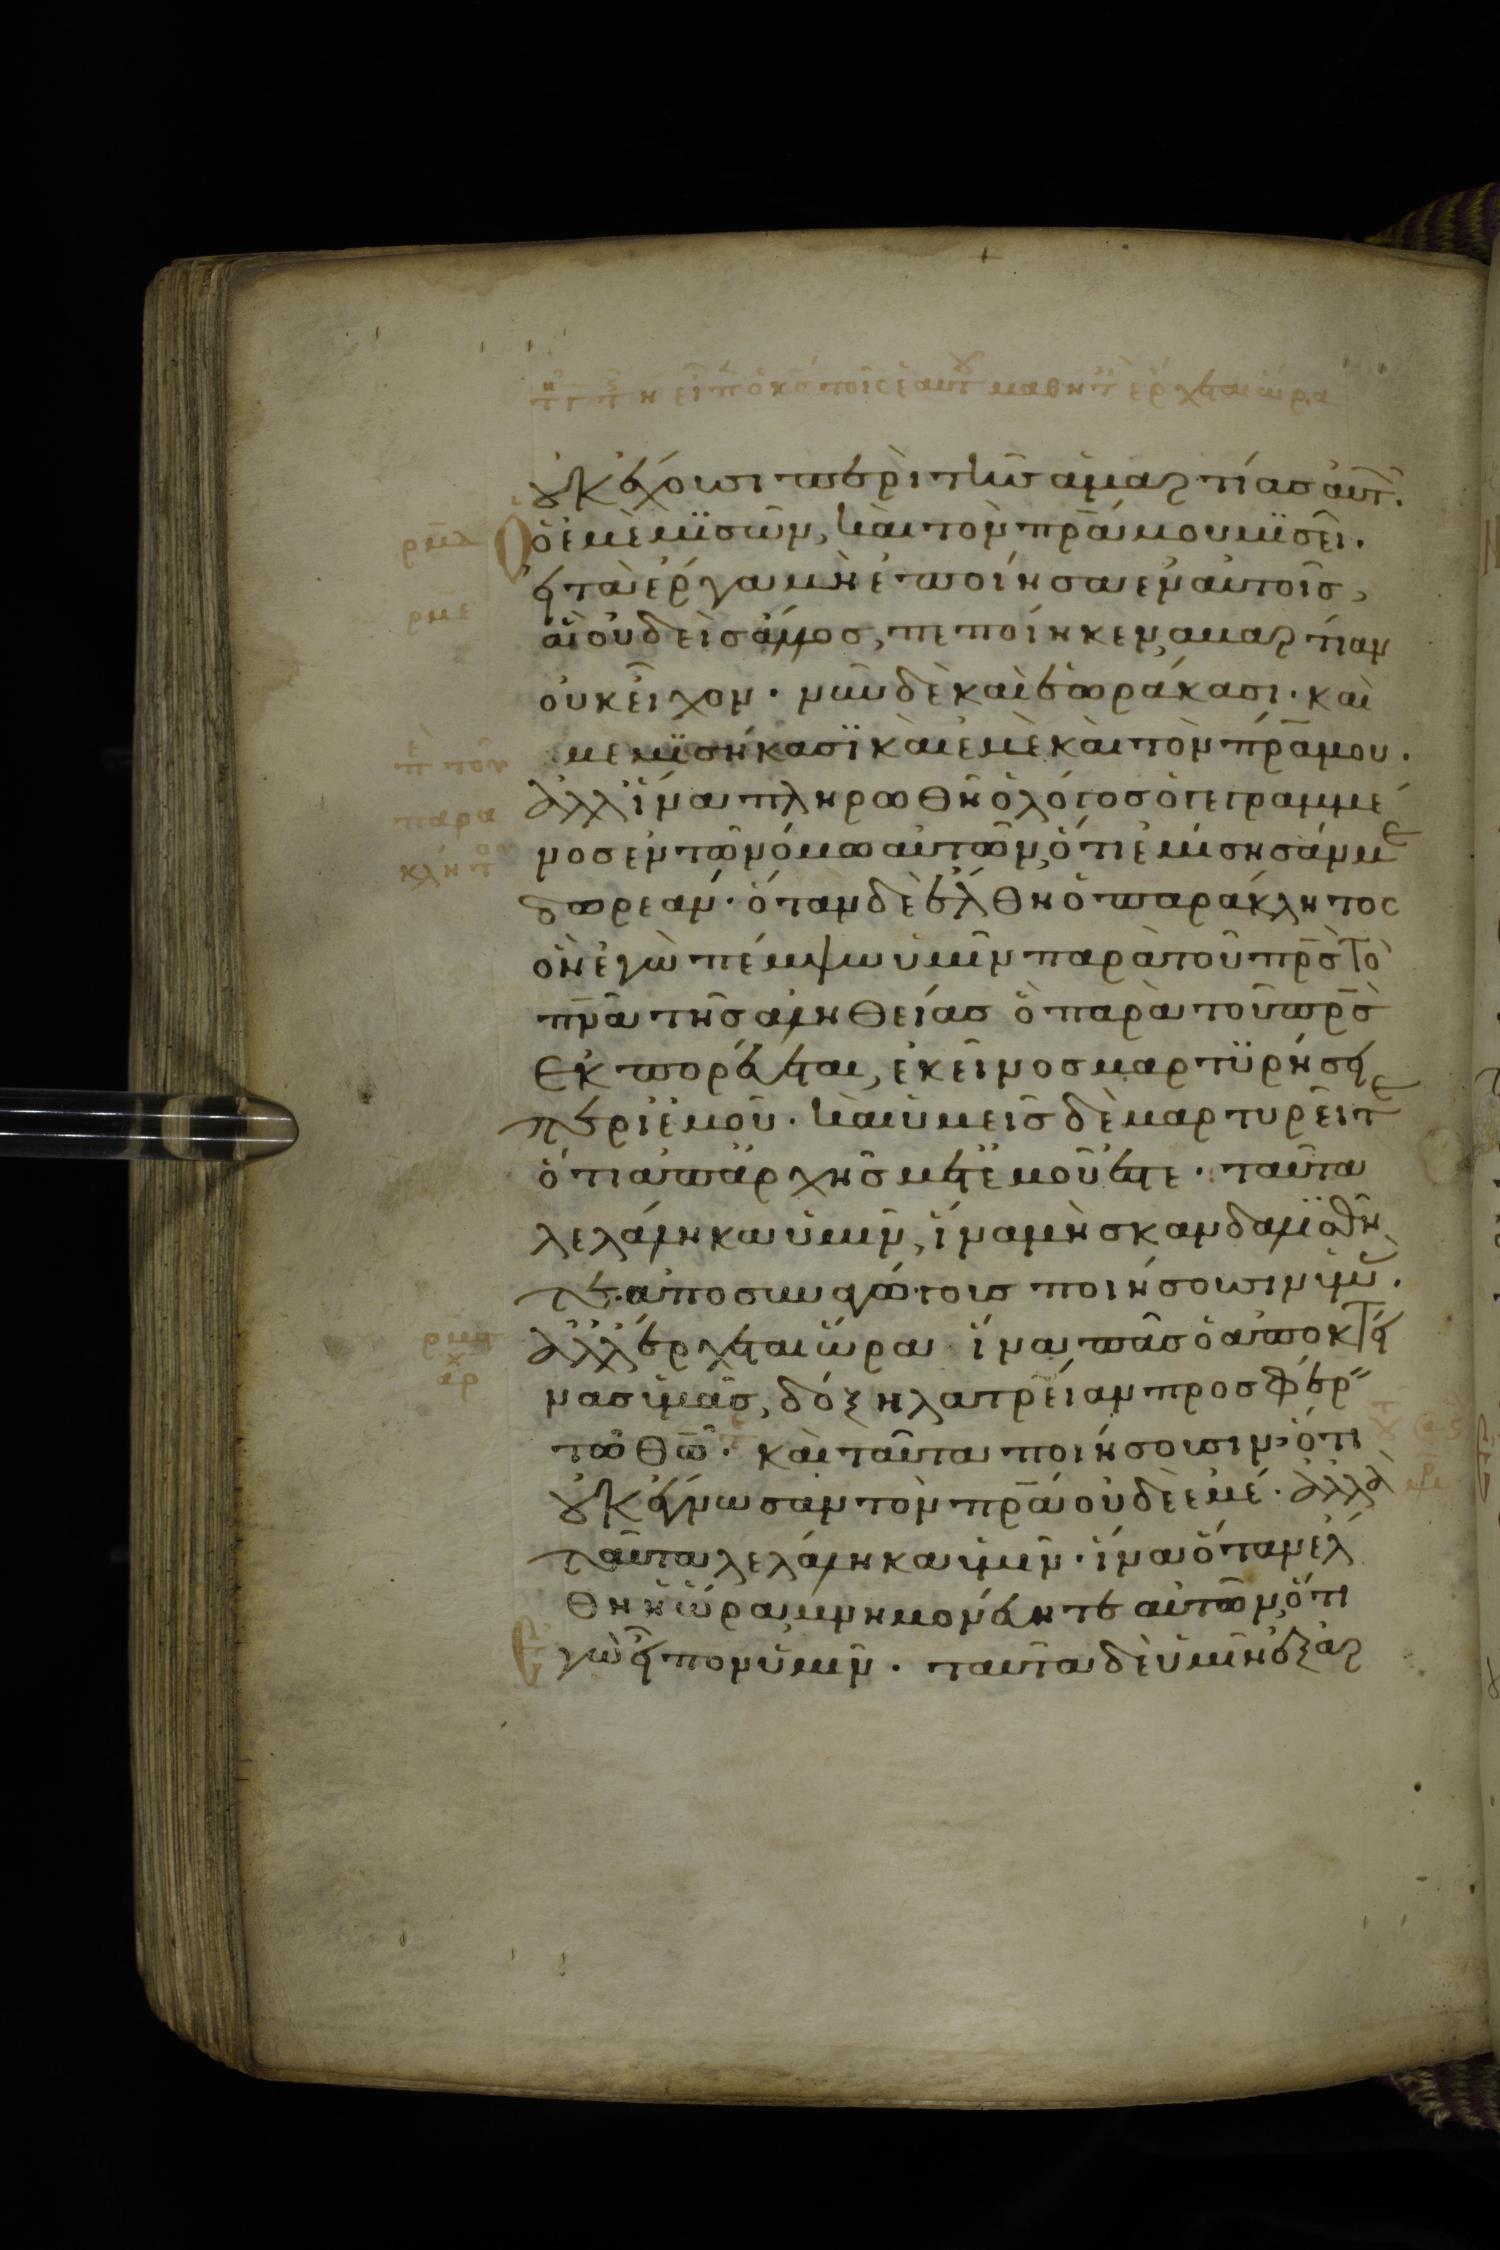 εἶπ ὁ κς τοῖς ἑαυτ μαθητ ἔρχεται ὥρα
οὐκ ἔχουσι περὶ τῆς ἁμαρτίας αὐτ.
ὁ ἐμὲ μϊσῶν, καὶ τὸν πρα μου μϊσεῖ.
εἰ τὰ ἔργα μὴ ἐποίησα ἐν αὐτοῖς,
ἃ οὐδεὶς ἄλλος, πεποίηκεν, αμαρτίαν
οὐκ εἶχον. νῦν δὲ καὶ ἑωράκασι. καὶ
μεμϊσήκασϊ καὶ ἐμὲ καὶ τὸν πρα μου.
ἀλλ ἵνα πληρωθῆ ὁ λόγος ὁ γεγραμμέ
νος ἐν τῶ νόμω αὐτῶν, ὅτι ἐμίσησάν με
δωρεάν. ὅταν δὲ ἔλθη ὁ παράκλητος
ὃν ἐγὼ πέμψω ὑμῖν παρὰ τοῦ πρς τὸ
πνα τῆς ἀληθείας ὃ παρὰ τοῦ πρς
ἐκπορεύεται, ἐκεῖνος μαρτϋρήσει
περὶ ἐμοῦ. καὶ ὑμεῖς δὲ μαρτυρεῖτε
ὅτι ἀπ ἀρχῆς μετ ἐμοῦ ἐστε. ταῦτα
λελάληκα ὑμῖν, ἵνα μὴ σκανδαλϊσθῆ
τε. ἀποσυναγώγους ποιήσουσιν ὑμ.
ἀλλ ἔρχεται ὥρα ἵνα πᾶς ὁ ἀποκτεί
νας ὑμᾶς, δόξη λατρείαν προσφέρ
τῶ θω. καὶ ταῦτα ποιήσουσιν, ὅτι
οὐκ ἔγνωσαν τὸν πρα οὐδὲ ἐμέ. ἀλλὰ
ταῦτα λελάληκα ὑμῖν. ἵνα ὅταν ἔλ
θη ἡ ὥρα, μνημονεύητε αὐτῶν, ὅτι
ἐγὼ εἶπον ὑμῖν. ταῦτα δὲ ὑμῖν ἐξ ἀρ
ρμδ
ρμε
παρα
κλητ
ρμϛ
αρ